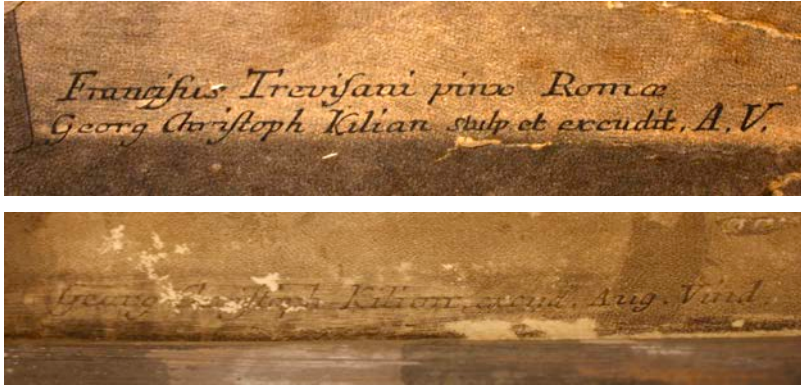 Francisus Trevisani pinx Romæ
Georg Christoph Kilian sculp et excudit. A.V.
Georg Christoph Kilian. excud. Aug. Vind.